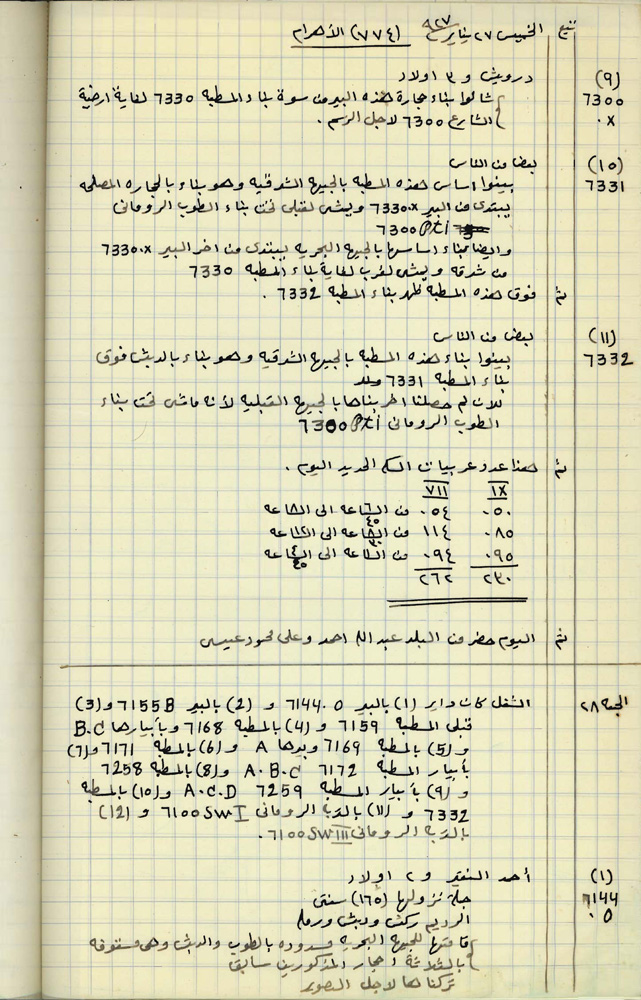 تبع الخميس ٢٧ يناير ٩٢٧ (٧٧٤) الأهرام
(٩) درويش و ٣ اولاد
7300 شالوا بناء حجارة هذه البير من سوة بناء المسطبه 7330 لغاية ارضية
.X الشارع 7300 لاجل الرسم.
(١٥) بعض من الناس
7331 بينوا اساس هذه المسطبه بالجهه الشرقيه وهو بناء بالحجاره المصلحه
يبتدى من البير 7330.X ويمشى لقبلى تحت بناء الطوب الرومانى
7300 Pti
وايضا بناء اساسها بالجهه البحريه يبتدى من اخر البير 7330.X
من شرقه ويمشى لغرب لغاية بناء المسطبه 7330
ثم فوق هذه المسطبه ظهر بناء المسطبه 7332.
(١١) بعض من الناس
7332 بينوا بناء هذه المسطبه بالجهه الشرقيه وهو بناء بالدبش فوق
بناء المسطبه 7331
للان لم حصلنا اخر بناها بالجهه القبليه لأنه ماشى تحت بناء
الطوب الرومانى 7300 Pti
ثم هذا عدد عربيات السكه الحديد اليوم.
IX VII
٠٥٠ ٠٥٤ من الساعه ٦ الى الساعه ٨
٠٨٥ ١١٤ من الساعه ٨ الى الساعه ١٢
٠٩٥ ٠٩٤ من الساعه الى الساعه ٤
٢٣٠ ٢٦٢
ثم اليوم حضر من البلد عبد الله احمد وعلى محمود عيسى
الجمعه ٢٨ الشغل كان داير (1) بالبير 7144.O و (2) بالبير 7155B و (3)
قبلى المسطبه 7159 و (4) بالمسطبه 7168 وبأبيارها B.C
و (5) بالمسطبه 7169 وبيرها A و (6) بالمسطبه 7171 و (7)
بأبيار المسطبه 7172 A.B.C و (8) بالمسطبه 7258
و (9) بأبيار المسطبه 7259 A.C.D و (10) بالمسطبه
7332 و (11) بالدبه الرومانى 7100 SW I و (12)
بالدبه الرومانى 7100 SW III.
(١) أحمد السنقر و ٢ اولاد
7144 جملة نزولها (١٦٥) سنتى
.O الرديم ركش ودبش ورمله
قامتها للجهه البحريه مسدوده بالطوب والدبش وهى مسقوفه
بالثلاثة احجار المذكورين سابق
تركناها لاجل التصوير